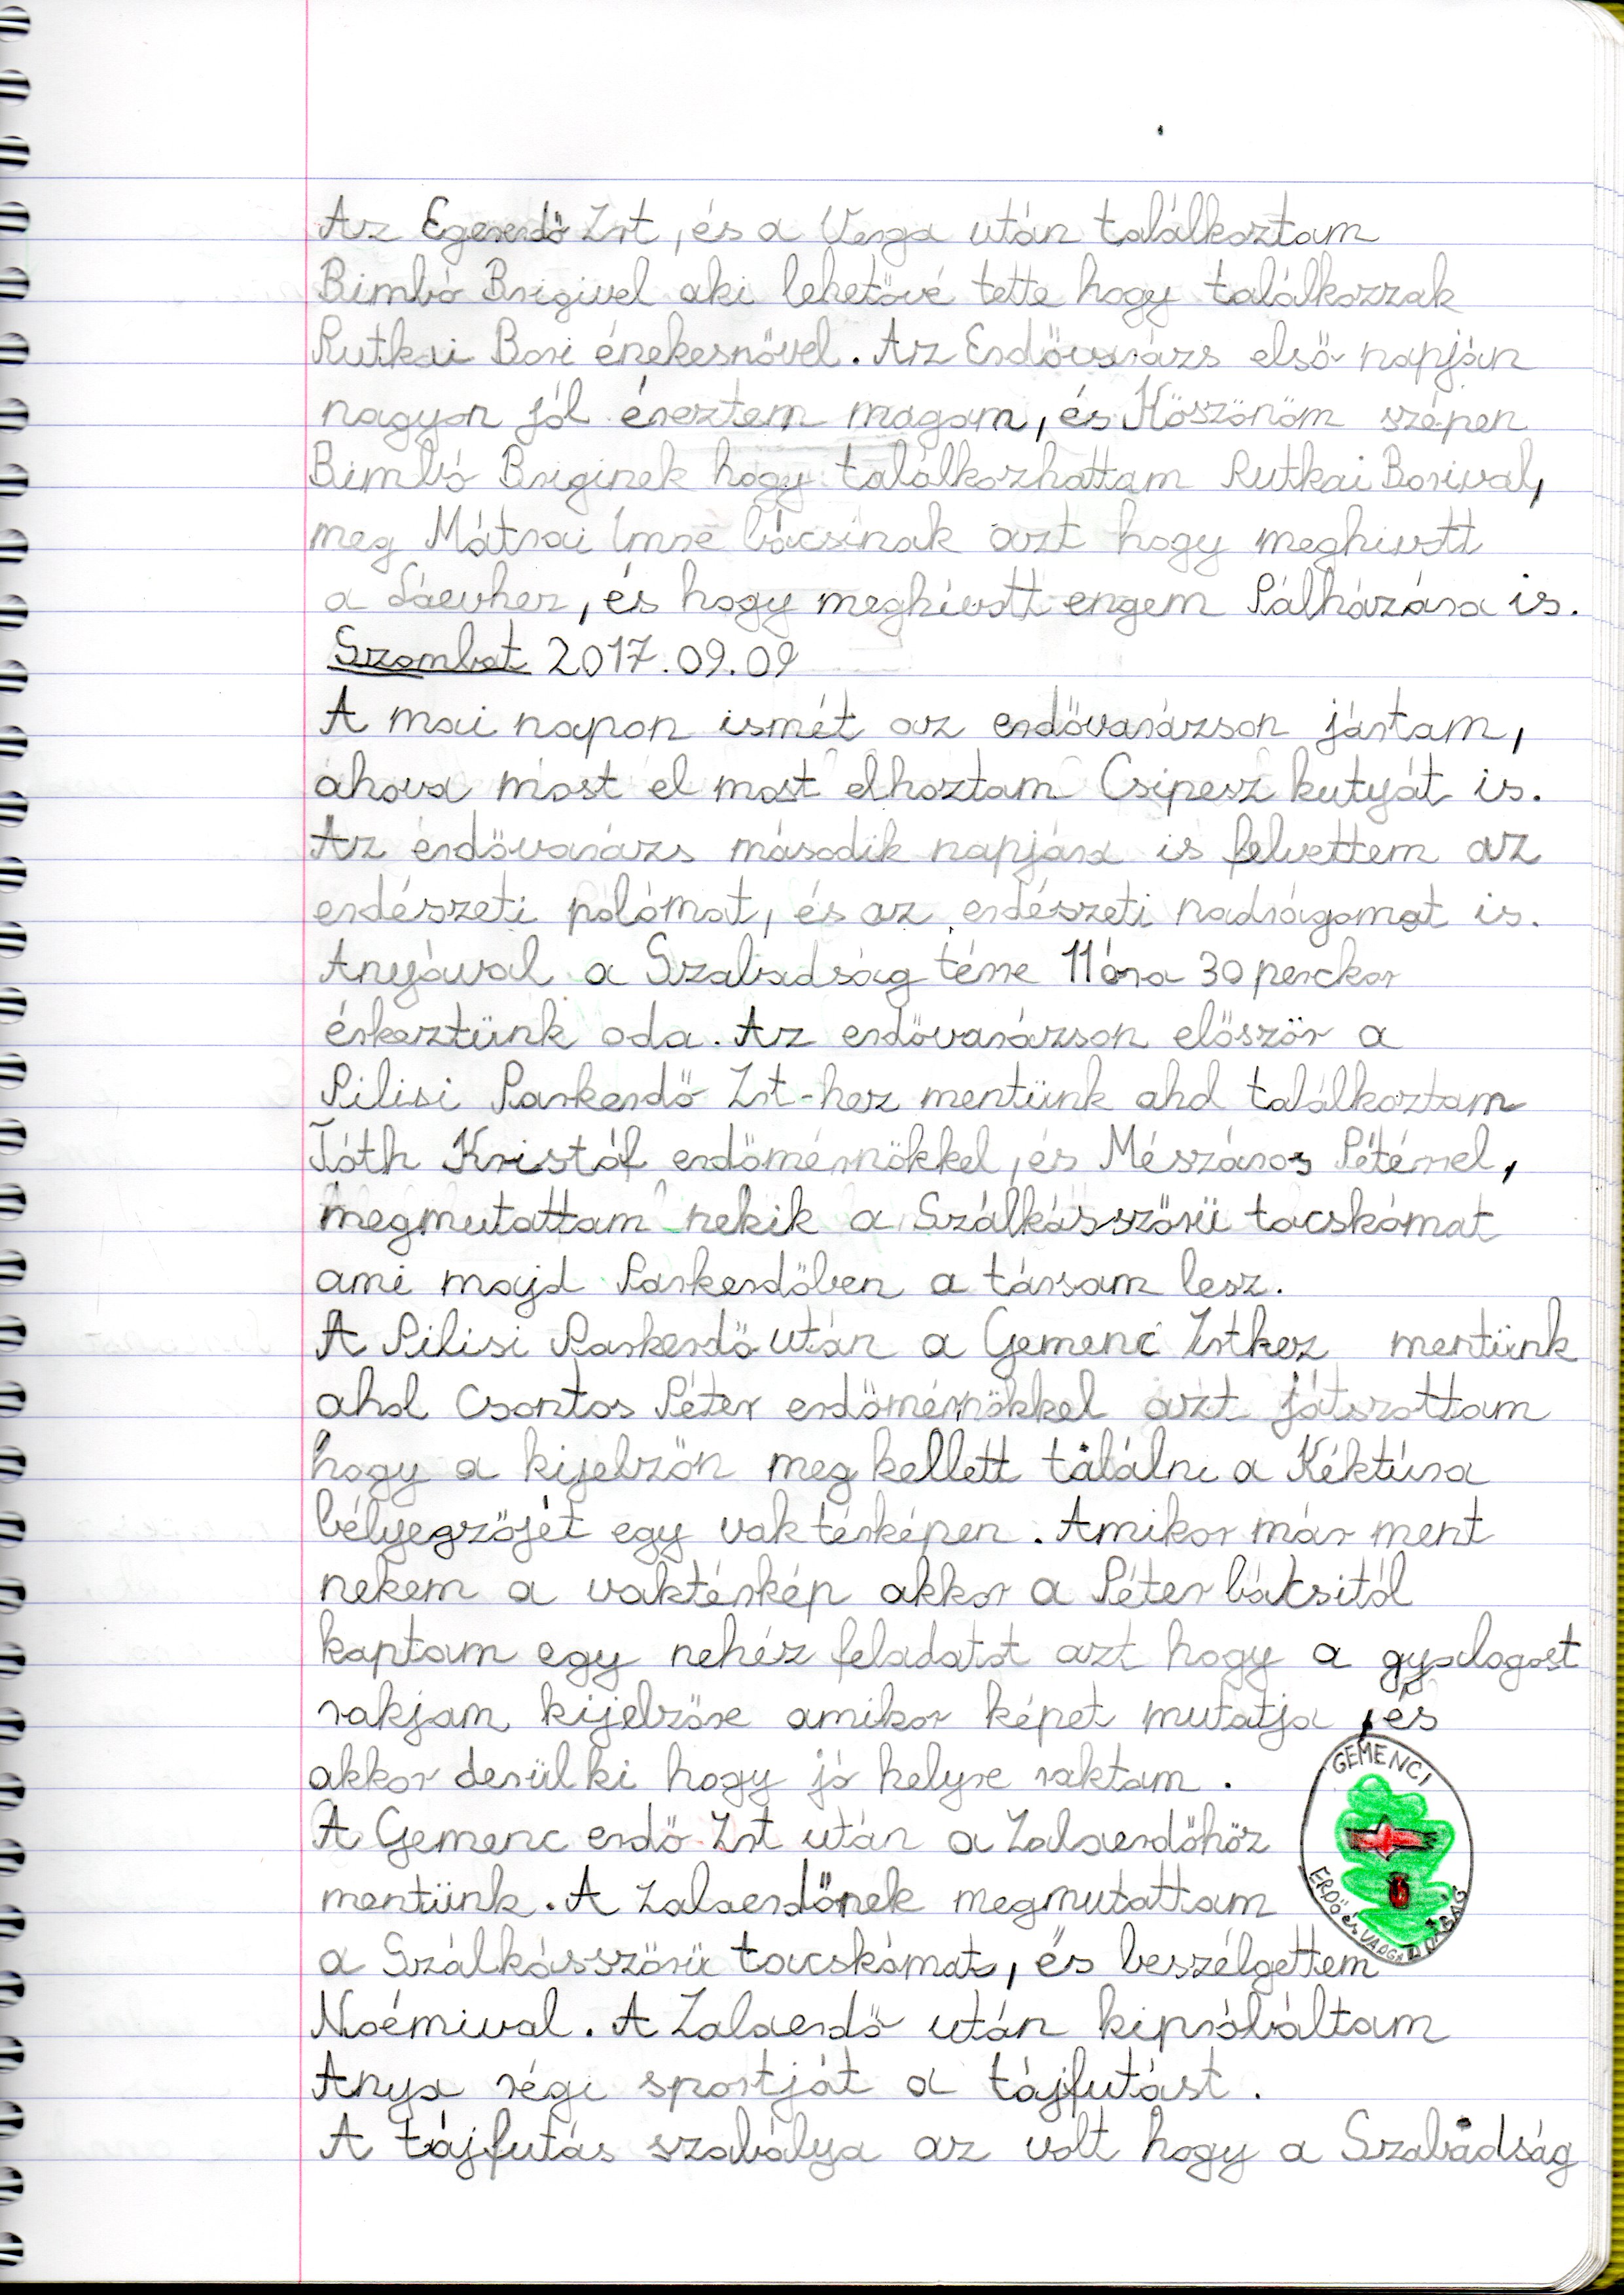 Az Egererdő Zrt, és a Verga után találkoztam
Bimbó Brigivel aki lehetővé tette hogy találkozzak
Rutkai Bori énekesnővel. Az Erdővarázs első napján
nagyon jól éreztem magam, és Köszönöm szépen
Bimbó Briginek hogy találkozhattam Rutkai Borival,
meg Mátrai Imre bácsinak azt hogy meghivott
a Láevhez, és hogy meghívott engem Pálházára is.
Szombat 2017.09.09
A mai napon ismét az erdővarázson jártam,
ahova most el most elhoztam Csipesz kutyát is.
Az erdővarázs második napjára is felvettem az
erdészeti pólómat, és az erdészeti nadrágomat is.
Anyával a Szabadság térre 11óra 30 perckor
érkeztünk oda. Az erdővarázson először a
Pilisi Parkerdő Zrt-hez mentünk ahol találkoztam
Tóth Kristóf erdőmérnökkel, és Mészáros Péterrel,
megmutattam nekik a Szálkásszőrü tacskómat
ami majd Parkerdőben a társam lesz.
A Pilisi Parkerdő után a Gemenc Zrthez mentünk
ahol Csontos Péter erdőmérnökkel azt játszottam
hogy a kijelzőn meg kellett találni a Kéktúra
bélyegzőjét egy vaktérképen. Amikor már ment
nekem a vaktérkép akkor a Péter bácsitól
kaptam egy nehéz feladatot azt hogy a gyalogost
rakjam kijelzőre amikor képet mutatja, és
akkor derül ki hogy jó helyre raktam.
A Gemenc erdő Zrt után a Zalaerdőhöz
mentünk. A Zalaerdőnek megmutattam
a Szálkásszőrü tacskómat, és beszélgettem
Noémival. A Zalaerdő után kipróbáltam
Anya régi sportját a tájfutást.
A tájfutás szabálya az volt hogy a Szabadság
GEMENCI
ERDŐ és VADGAZDASÁG